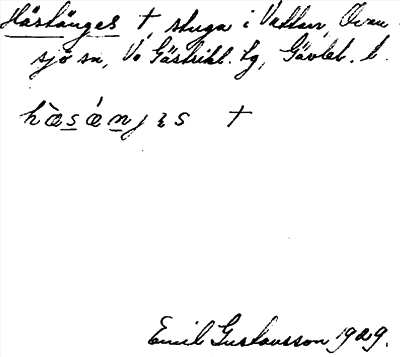 Hästänges †, stuga i Vattan, Ovan-
sjö sn, Vä Gästrikl. tg, Gävleb. l.
hæ̀sǽnjɛs †
Emil Gustavsson 1929.